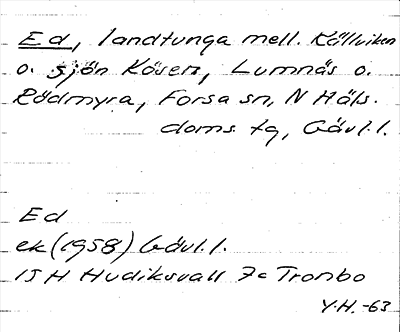 Ed, landtunga mell. Källviken
o. sjön Kösen, Lumnäs o.
Rödmyra, Forsa sn, N Häls.
doms. tg, Gävl.l.
Ed
ek (1958) Gävl.l.
15 H Hudiksvall 7c Trombo
Y.H. -63